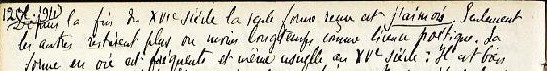 120l. 1911
Depuis la fin du XVIe siècle la seule forme reçue est j'aimois. Seulement
les autres restaient plus ou moins longtemps comme licence poétique. La
forme en oie est fréquente et même usuelle au XVe siècle : Il est bien